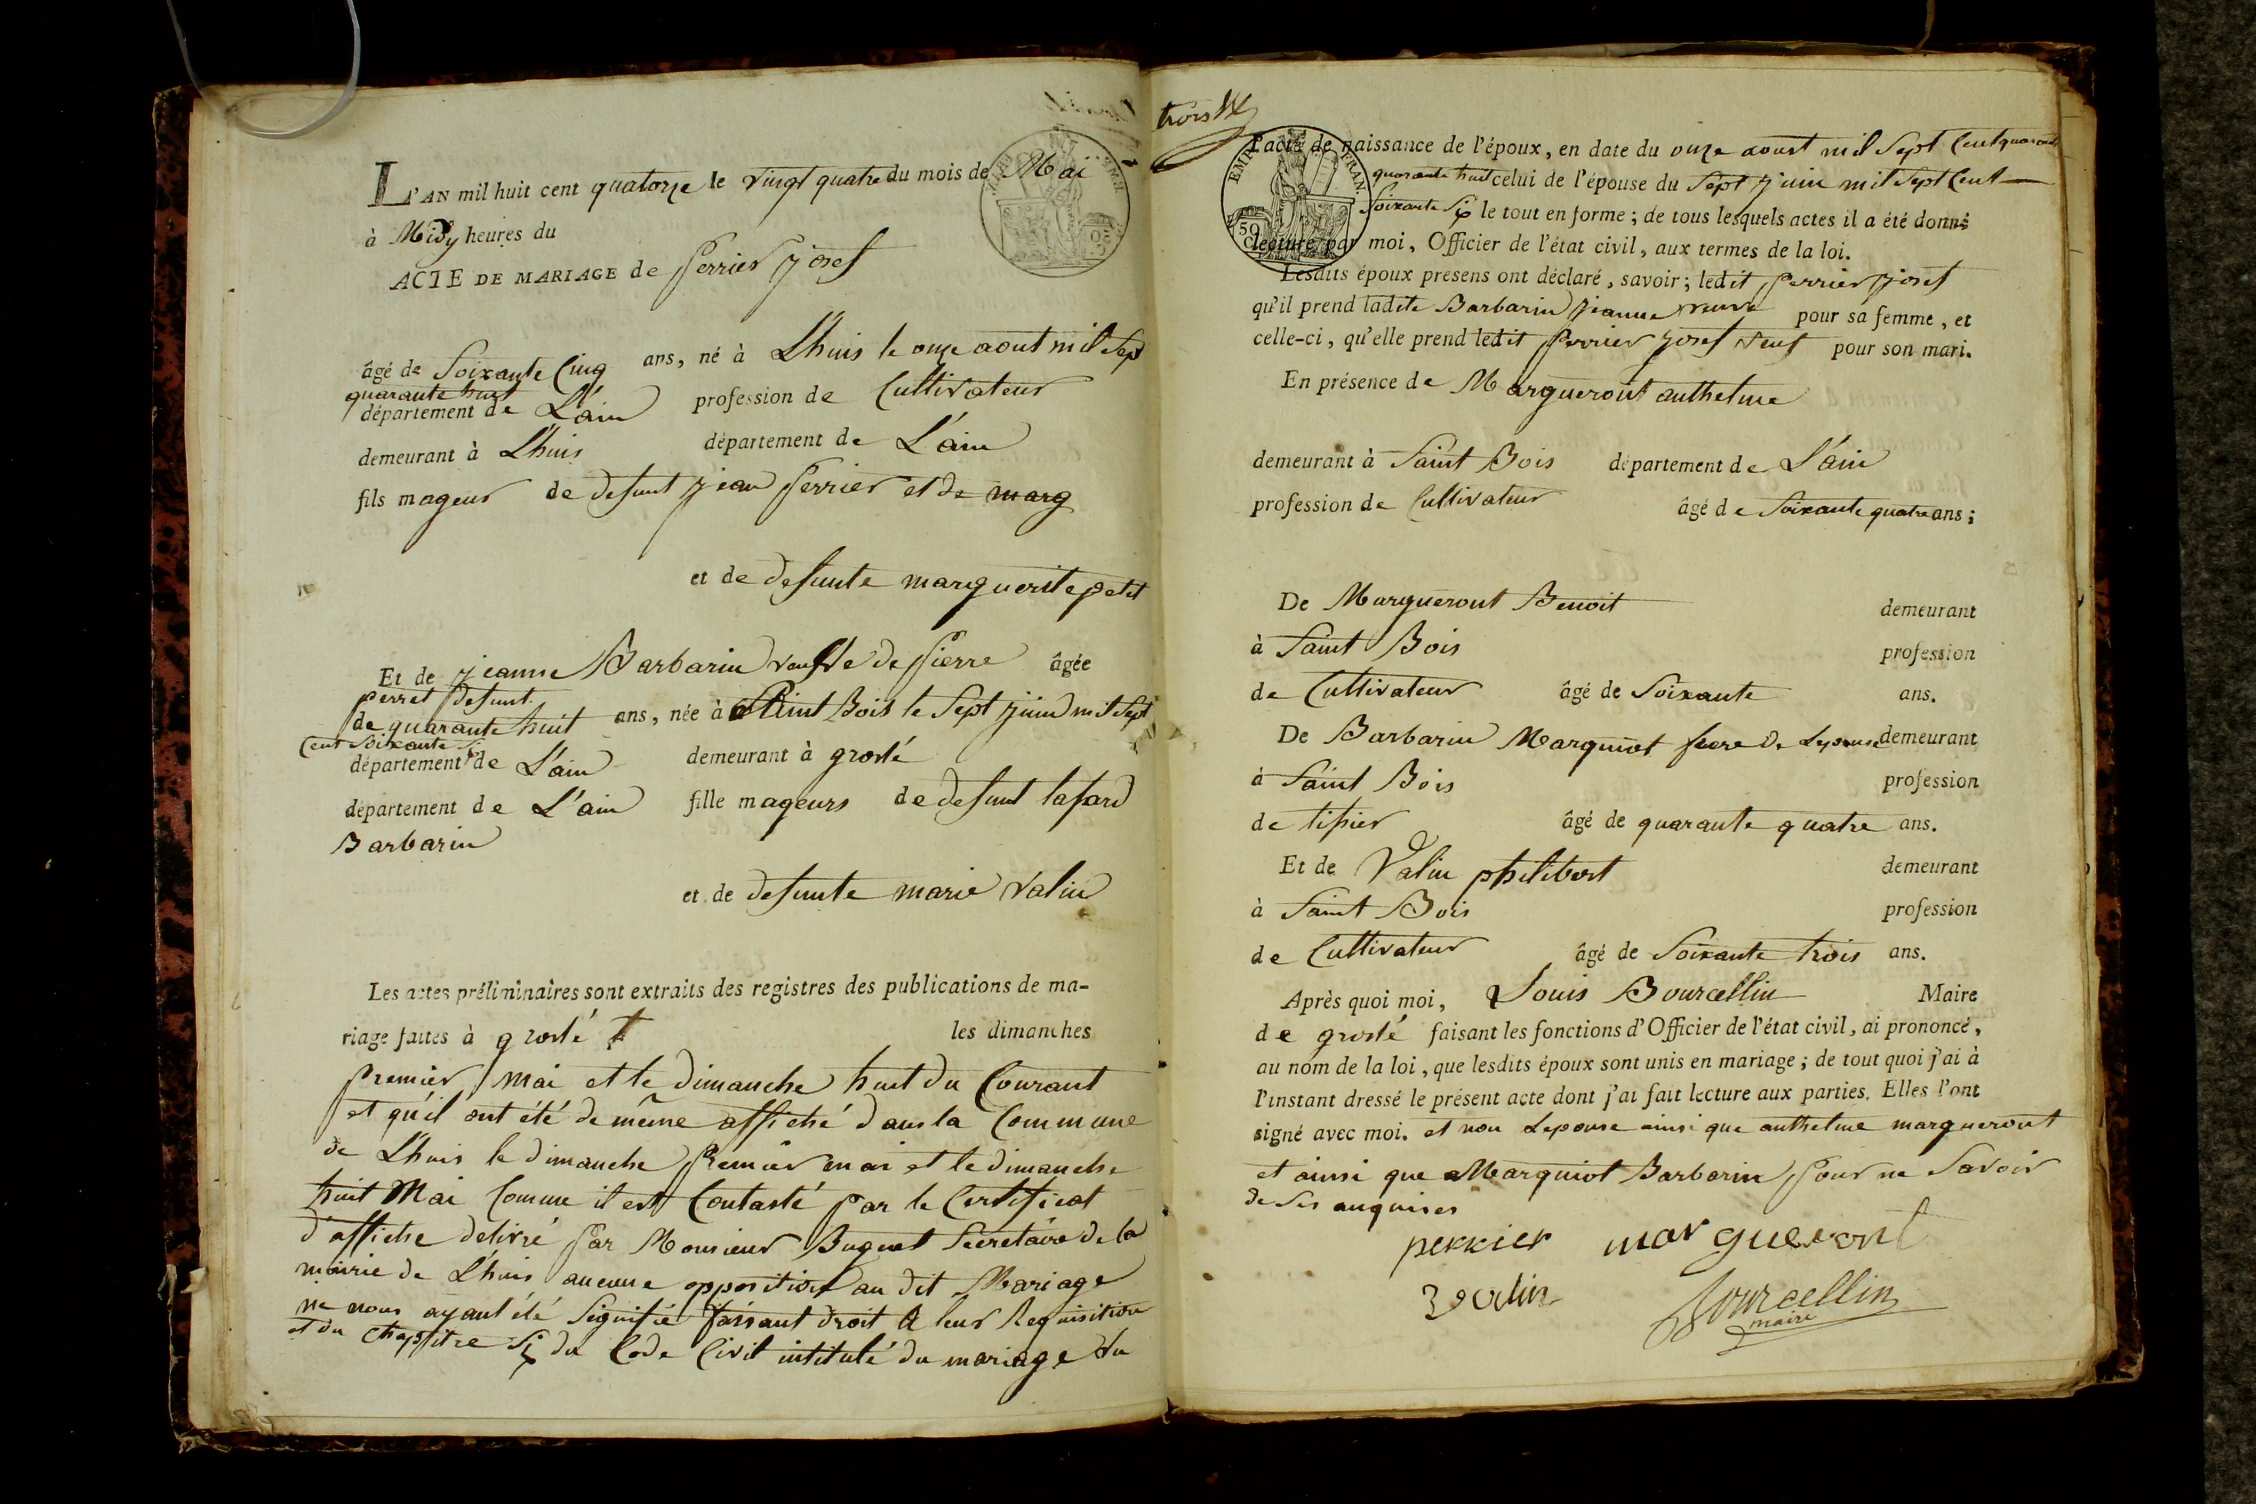 L'AN mil huit cent quatorze le vingt quatre du mois de Mai
à Midy heures du
ACTE DE MARIAGE de perrier josef
âgé de Soixante Cinq ans, né à Lhuis le onze aout mil Sept
quarante huit
département de L'ain profession de Cultivateur
demeurant à Lhuis département de L'ain
fils mageur de defunt jean perrier et de marg
et de defunte marguerite petit
Et de jeanne Barbarin veufve de pierre âgée
perret defunt
de quarante huit ans, née à Saint Bois le Sept juin mil Sept
Cent Soixante Six
département de L'ain demeurant à groslé
département de L'ain fille mageurs de defunt lafard
Barbarin
et de defunte marie valin
Les actes préliminaires sont extraits des registres des publications de ma-
riage faites à groslé les dimanches
premier mai et le dimanche huit du Courant
et qu'il ont été de même affiché dans la Commune
de Lhuis le dimanche premier mai et le dimanche
huit Mai Comme il est Contasté par le Certificat
d'affiche delivré par Monsieur Buguet Secretaire de la
mairie de Lhuis aucune opposition au dit Mariage
ne nous ayant été Signifié faisant droit A leur Requisition
et du chapitre Six du Code Civil intitulé du mariage du
trois
l'acte de naissance de l'époux, en date du onze aoust mil Sept Cent quarante
quarante huit celui de l'épouse du Sept juin mil Sept Cent
Soixante Six le tout en forme; de tous lesquels actes il a été donné
lecture par moi, Officier de l'état civil, aux termes de la loi.
EMP. FRAN.
50 C
Lesdits époux présens ont déclaré, savoir; ledit perrier josef
qu'il prend ladite Barbarin jeanne veuve pour sa femme, et
celle-ci, qu'elle prend ledit perrier josef veuf pour son mari.
En présence de Margueront anthelme
demeurant à Saint Bois département de L'ain
profession de Cultivateur âgé de Soixante quatre ans;
De Margueront Benoit demeurant
à Saint Bois profession
de Cultivateur âgé de Soixante ans.
De Barbarin Marguiot frere de Lepouse demeurant
à Saint Bois profession
de tisier âgé de quarante quatre ans.
Et de Valin philibert demeurant
à Saint Bois profession
de Cultivateur âgé de Soixante trois ans.
Après quoi moi, Louis Bourcellin Maire
de groslé faisant les fonctions d'Officier de l'état civil, ai prononcé,
au nom de la loi, que lesdits époux sont unis en mariage; de tout quoi j'ai à
l'instant dressé le présent acte dont j'ai fait lecture aux parties. Elles l'ont
signé avec moi. et non Lepouse ainsi que anthelme margueront
et ainsi que Marguiot Barbarin pour ne Savoir
de Ses anquises
perrier margueront
valin Bourcellin
maire